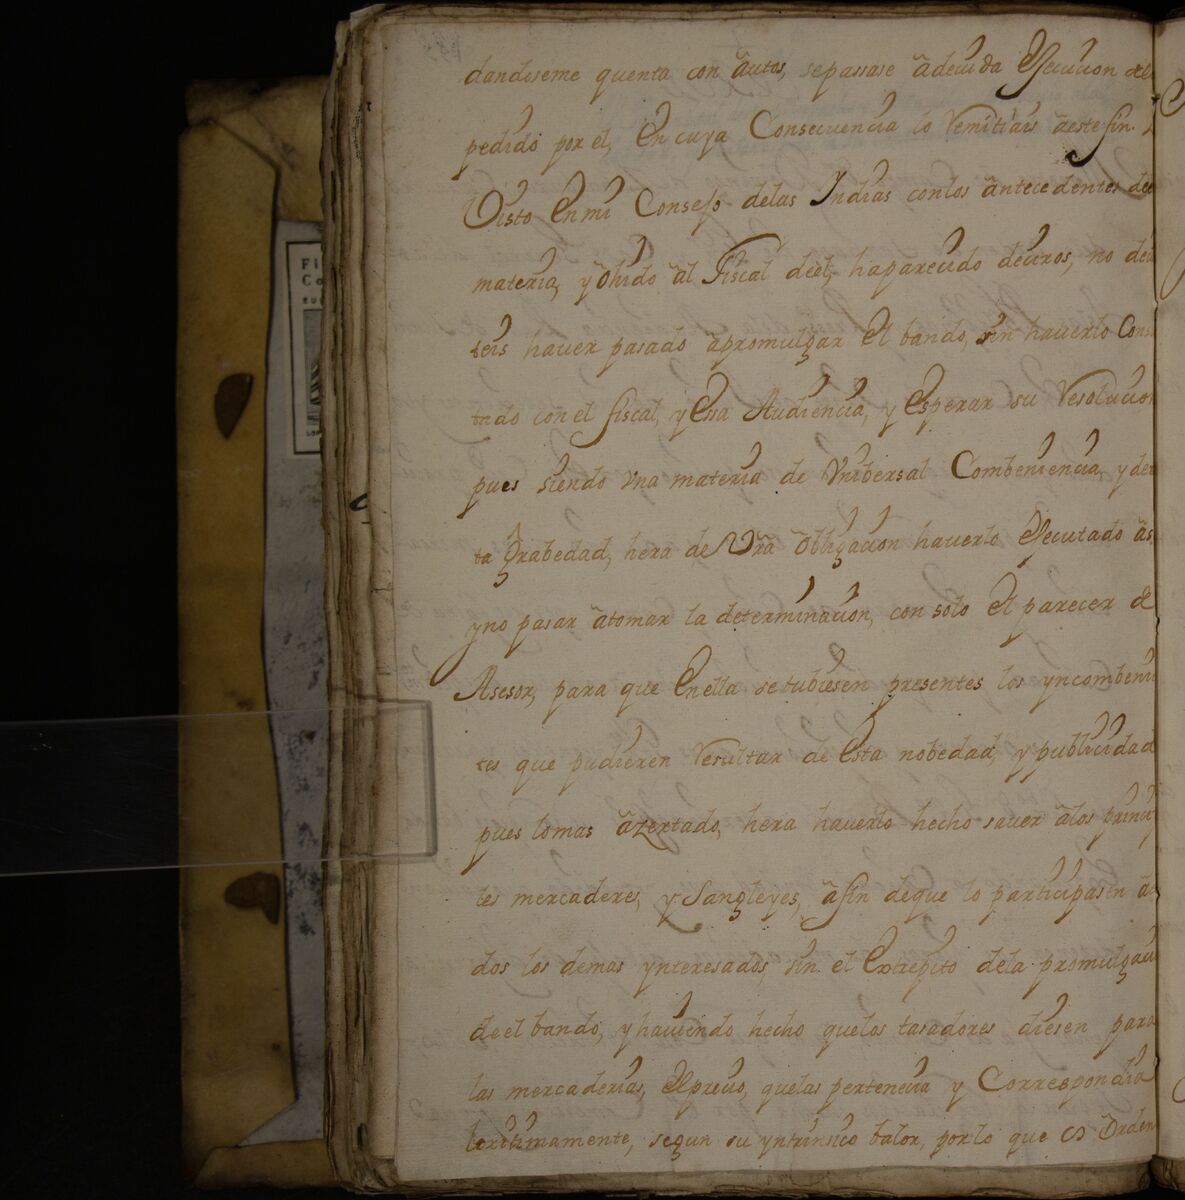 dandoseme quenta con autos, se passase a devida Ejecucion de el
pedido por el, En cuya Consecuencia lo remitiais a este fin. Y
Visto En mi Consejo de las Indias con los antecedentes de la
materia, y ohido al Fiscal de el, ha parecido deciros, no de
teis haver pasado a promulgar El bando, sin haverlo Consul
tado con el fiscal, y Esa Audiencia, y Esperar su resolucion
pues siendo vna materia de vnibersal Combeniencia, y de
ta grabedad, hera de Vra obligacion haverlo Ejecutado as
y no pasar a tomar la determinacion, con solo El parecer de
Asesor, para que En ella se tubiesen presentes los yncombeni
tes que pudieren resultar de Esta nobedad, y publicidad
pues lo mas azertado, hera haverlo hecho saver a los princip
les mercaderes, y Sangleyes, a fin de que lo participasen a
dos los demas ynteresados, sin el Extrepito de la promulgaci
de el bando, y haviendo hecho que los tasadores diesen para
las mercaderias, El precio, que las pertenecia y Correspondia
lexitimamente, segun su yntrinsico balor, por lo que os Orden